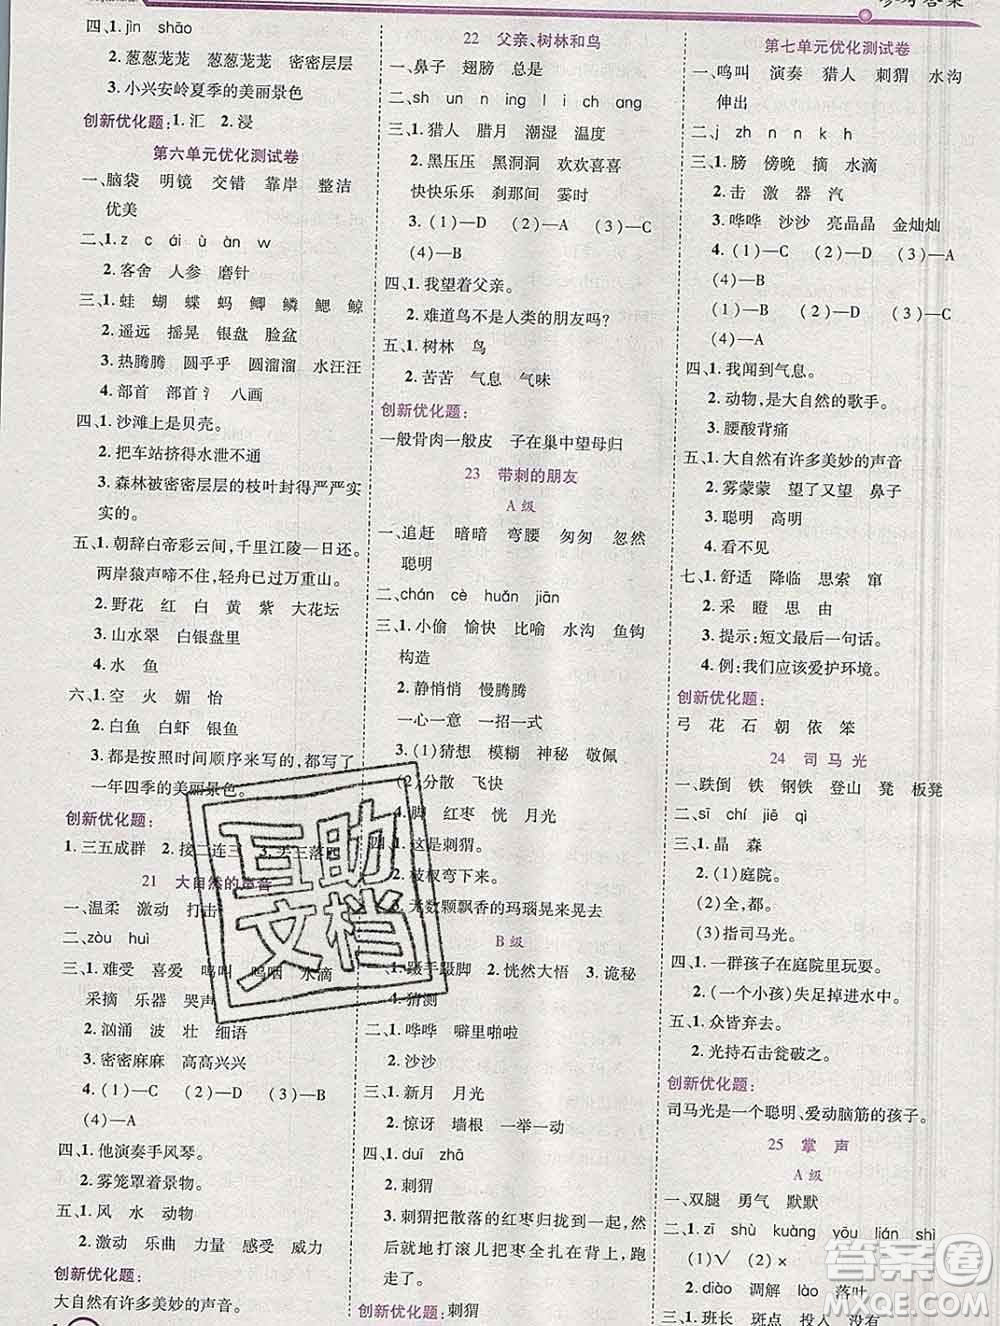 参考答案
四、1. jìn shāo
2. 葱葱茏茏 葱葱茏茏 密密层层
3. 小兴安岭夏季的美丽景色
创新优化题:1. 汇 2. 浸
第六单元优化测试卷
一、脑袋 明镜 交错 靠岸 整洁
优美
二、1. z c ái ù àn w
2. 客舍 人参 磨针
三、1. 蛙 蝴 蝶 蚂 鲫 鳞 鳃 鲸
2. 遥远 摇晃 银盘 脸盆
3. 热腾腾 圆乎乎 圆溜溜 水汪汪
4. 部首 部首氵 八画
四、1. 沙滩上是贝壳。
2. 把车站挤得水泄不通
3. 森林被密密层层的枝叶封得严严实
实的。
五、1. 朝辞白帝彩云间,千里江陵一日还。
两岸猿声啼不住,轻舟已过万重山。
2. 野花 红 白 黄 紫 大花坛
3. 山水翠 白银盘里
4. 水 鱼
六、1. 空 火 媚 怡
2. 白鱼 白虾 银鱼
3. 都是按照时间顺序来写的,都写了
一年四季的美丽景色。
创新优化题:
1. 三五成群 2. 接二连三 3. 丢三落四
21 大自然的声音
一、温柔 激动 打击
二、zòu huì
三、1. 难受 喜爱 鸣叫 呜咽 水滴
采摘 乐器 哭声
2. 汹涌 波 壮 细语
3. 密密麻麻 高高兴兴
4. (1)—C (2)—D (3)—B
(4)—A
四、1. 他演奏手风琴。
2. 雾笼罩着景物。
五、1. 风 水 动物
2. 激动 乐曲 力量 感受 威力
创新优化题:
大自然有许多美妙的声音。
22 父亲、树林和鸟
一、鼻子 翅膀 总是
二、sh un n ing l i ch ang
三、1. 猎人 腊月 潮湿 温度
2. 黑压压 黑洞洞 欢欢喜喜
快快乐乐 刹那间 霎时
3. (1)—D (2)—A (3)—C
(4)—B
四、1. 我望着父亲。
2. 难道鸟不是人类的朋友吗?
五、1. 树林 鸟
2. 苦苦 气息 气味
创新优化题:
一般骨肉一般皮 子在巢中望母归
23 带刺的朋友
A 级
一、追赶 暗暗 弯腰 匆匆 忽然
聪明
二、chán cè huǎn jiān
三、1. 小偷 愉快 比喻 水沟 鱼钩
构造
2. 静悄悄 慢腾腾
一心一意 一招一式
3. (1)猜想 模糊 神秘 敬佩
(2)分散 飞快
4. 脚 红枣 恍 月光
四、1. 这是刺猬。
2. 枝杈弯下来。
3. 无数颗飘香的玛瑙晃来晃去
B 级
一、1. 蹑手蹑脚 2. 恍然大悟 3. 诡秘
4. 猜测
二、1. 哗哗 噼里啪啦
2. 沙沙
三、1. 新月 月光
2. 惊讶 墙根 一举一动
四、1. duī zhā
2. 刺猬
3. 刺猬把散落的红枣归拢到一起,然
后就地打滚儿把枣扎在背上,跑
走了。
创新优化题:刺猬
第七单元优化测试卷
一、鸣叫 演奏 猎人 刺猬 水沟
伸出
二、j zh n n k h
三、1. 膀 傍晚 摘 水滴
2. 击 激 器 汽
3. 哗哗 沙沙 亮晶晶 金灿灿
4. (1)—C (2)—A (3)—D
(4)—B
5. (1)—B (2)—D (3)—C
(4)—A
四、1. 我闻到气息。
2. 动物,是大自然的歌手。
3. 腰酸背痛
五、1. 大自然有许多美妙的声音
2. 雾蒙蒙 望了又望 鼻子
3. 聪明 高明
4. 看不见
七、1. 舒适 降临 思索 窜
2. 采 瞪 思 出
3. 提示:短文最后一句话。
4. 例:我们应该爱护环境。
创新优化题:
弓 花 石 朝 依 笨
24 司马光
一、跌倒 铁 钢铁 登山 凳 板凳
二、sī chí jiē qì
三、1. 晶 森
2. (1)庭院。
(2)全,都。
(3)指司马光。
四、1. 一群孩子在庭院里玩耍。
2. (一个小孩)失足掉进水中。
五、1. 众皆弃去。
2. 光持石击瓮破之。
创新优化题:
司马光是一个聪明、爱动脑筋的孩子。
25 掌声
A 级
一、双腿 勇气 默默
二、1. zī shù kuàng yōu lián shì
(1)√ (2)×
2. diào 调解 lào 落叶
三、1. 班长 斑点 投入 没有
互助文档
答案圈
MXQE.COM